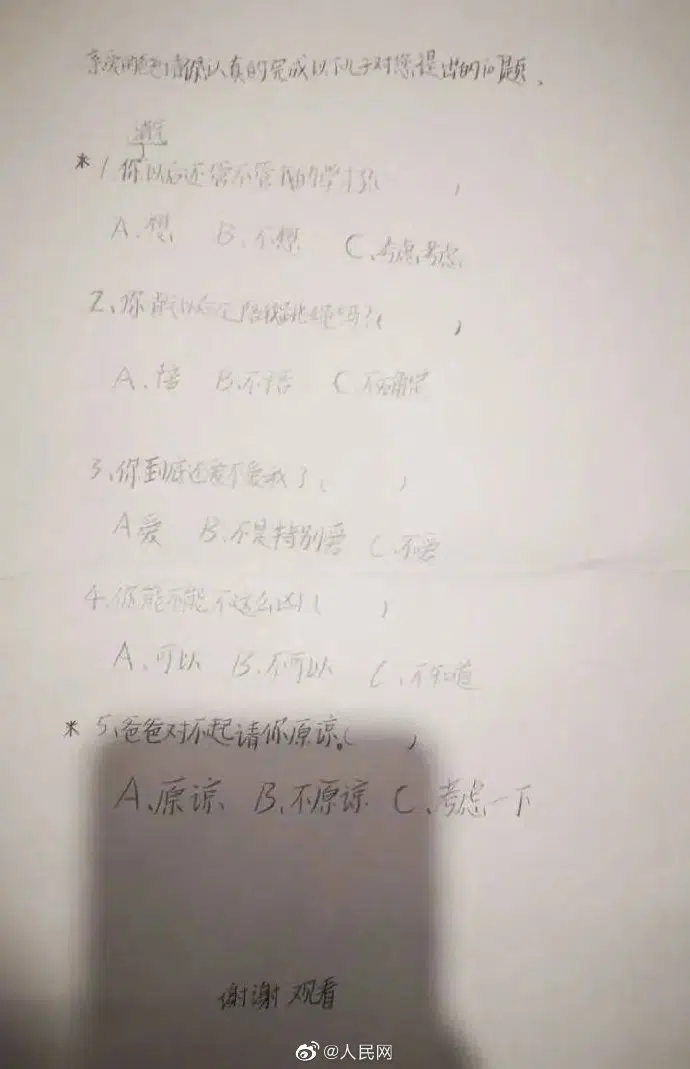 亲爱的爸爸请你认真的完成以下儿子对您提出的问题、
*1、你以后还管不管我的学习了( )
A、想 B、不想 C、考虑考虑
2、你 以后 陪我 吗?( )
A、陪 B、不陪 C、不确定
3、你到底还爱不爱我了( )
A爱 B、不是特别爱 C、不爱
4、你能不能不这么凶( )
A、可以 B、不可以 C、不知道
*5、爸爸对不起请你原谅。( )
A、原谅、 B、不原谅 C、考虑一下
谢谢观看
@人民网